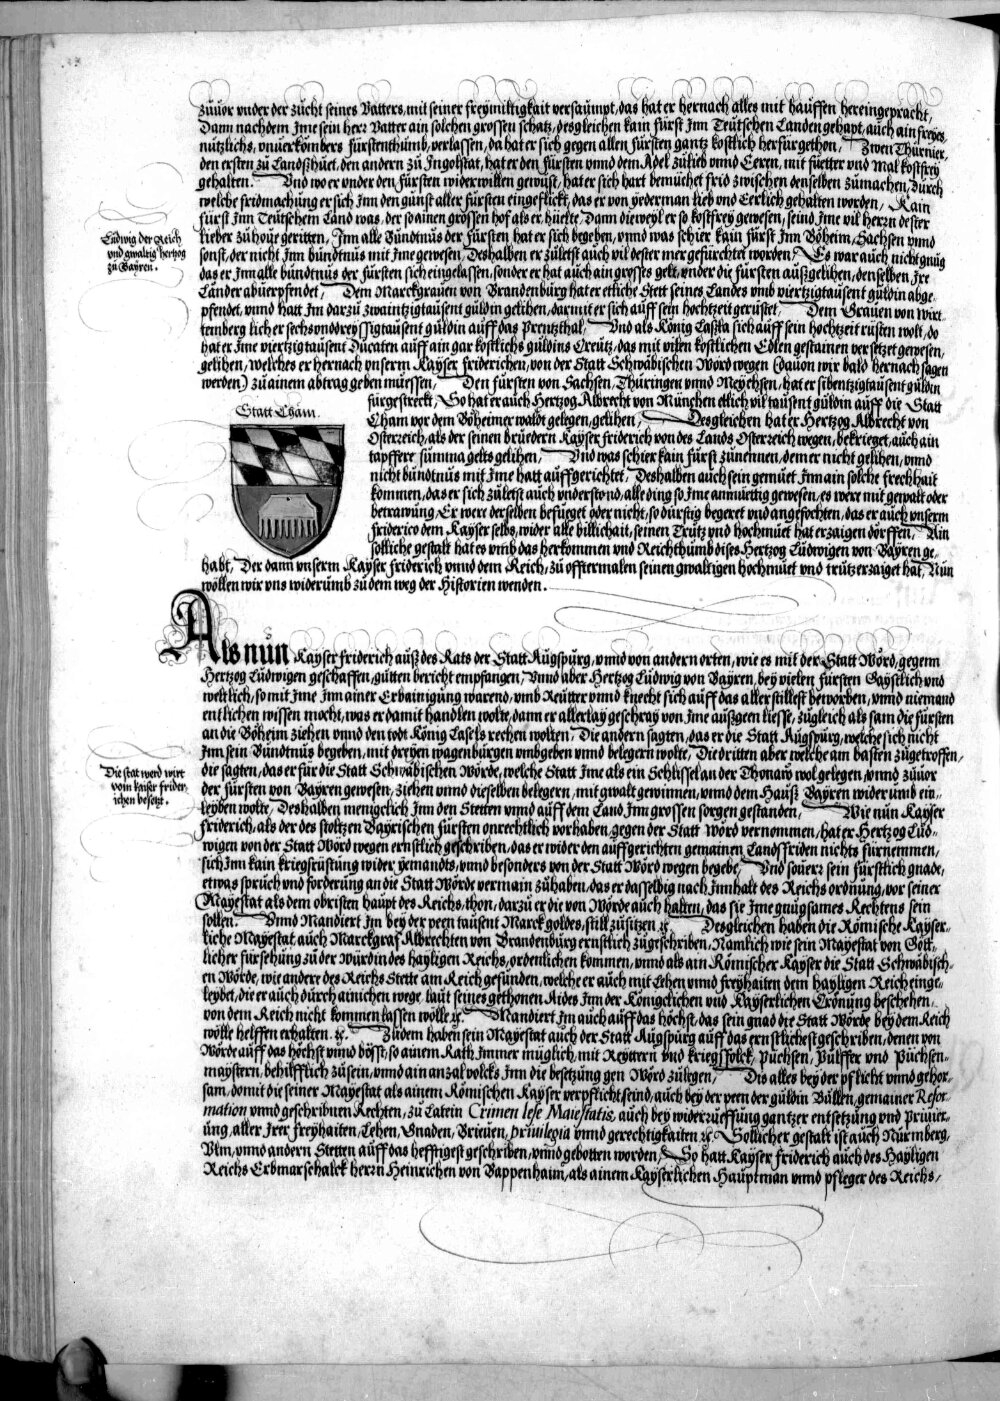 zůuor vnder der zucht seines Vatters, mit seiner freymiltigkait versaůmpt, das hat er hernach alles mit hauffen hereingepracht,
Dann nachdem Ime sein herr Vatter ain solchen grossen schatz, desgleichen kain fürst Inn Teütschen Landen gehapt, auch ain freyes
nützlichs, vnuerkombers fürstenthumb, verlassen, da hat er sich gegen allen fürsten gantz kostlich herfür gethon, Zwen Thurnier,
den ersten zů Landszhüet, den andern zů Ingolstat, hat er den fürsten vnnd dem Adel zůlieb vnnd Eeren, mit füetter vnd Mal kostfrey
gehalten. Vnd wo er vnder den fürsten widerwillen gewüst, hat er sich hart bemüchet frid zwischen denselben zůmachen, Durch
welche fridmachung er sich Inn den günst aller fürsten eingeflickt, das er von yederman lieb vnd Eerlich gehalten worden, Kain
fürst Inn Teütschem Land was, der so ainen grossen hof als er hüelte, Dann dieweyl er so kostfrey gewesen, seind Ime vil herrn dester
lieber zů houe geritten, Inn alle Bündtnüs der fürsten hat er sich begeben, vnnd was schier kain fürst Inn Böheim, Sachsen vnnd
sonst, der nicht Inn bündtnüs mit Ime gewesen, Deshalben er zůletst auch vil dester mer gefürchtet worden, Es war auch nicht gnůg
das er Inn alle bündtnüs der fürsten sich eingelassen, sonder er hat auch ain grosses gelt, vnder die fürsten außgelihen, denselben Ire
Länder abuerpfendet, Dem Marckgrauen von Brandenburg hat er etliche Stett seines Landes vmb viertzigtausent güldin abge„
pfendet, vnnd hatt Im darzů zwaintzigtausent güldin gelihen, darmit er sich auff sein hochtzeit gerüstet, Dem Grauen von Wirt„
temberg lich er sechsvnddreyssigtausent güldin auff das Prentzthal, Vnd als König Laßla sich auff sein hochtzeit rüsten wolt, do
hat er Ime viertzigtausent Ducaten auff ain gar kostlichs güldins Creütz, das mit vilen kostlichen Edlen gestainen versetzet gewesen,
gelihen, welches er hernach vnserm Kayser friderichen, von der Statt Schwäbischen Wörd wegen (dauon wir bald hernach sagen
werden) zů ainem abtrag geben müessen, Den fürsten von Sachsen, Thüringen vnnd Meychsen, hat er sibentzigtausent güldin
fürgestreckt, So hat er auch Hertzog Albrecht von München etlich vil tausent güldin auff die Statt
Statt Cham.
Cham vor dem Böheimer waldt gelegen, gelihen, Desgleichen hat er Hertzog Albrecht von
Osterreich, als der seinen brüedern Kayser friderich von des Lands Osterreich wegen, bekrieget, auch ain
tapffere summa gelts gelihen, Vnd was schier kain fürst zůnennen, dem er nicht gelihen, vnnd
nicht bündtnüs mit Ime hatt auffgerichtet, Deshalben auch sein gemüet Inn ain solche frechhait
kommen, das er sich zůletst auch vnderstond, alle ding so Ime anmüttig gewesen, es were mit gewalt oder
betrawung, Er were derselben befüeget oder nicht, so dürstig begeret vnd angefochten, das er auch vnserm
friderico dem Kayser selbs, wider alle billichait, seinen Trütz vnd hochmüet hat erzaigen dörffen, Ain
solliche gestalt hat es vmb das herkommen vnd Reichthumb dises Hertzog Ludwigen von Bayren ge„
habt, Der dann vnserm Kayser friderich vnnd dem Reich, zů offtermalen seinen gwaltigen hochmüet vnd trütz erzaiget hat, Nun
wöllen wir vns widerumb zů dem weg der Historien wenden.
Ludwig der Reich
vnd gwaltig hertzog
zů Bayren.
Als nun Kayser friderich auß des Rats der Statt Augspurg, vnnd von andern orten, wie es mit der Statt Wörd, gegenn
Hertzog Ludwigen geschaffen, gůtten bericht empfangen, Vnnd aber Hertzog Ludwig von Bayren, bey vielen fürsten Gaystlich vnd
weltlich, so mit Ime Inn ainer Erbainigung warend, vmb Reütter vnnd knecht sich auff das aller stillest beworben, vnnd niemand
entlichen wissen mocht, was er damit handlen wolte, dann er allerlay geschray von Ime außgeen liesse, zůgleich als sam die fürsten
an die Böheim ziehen vnnd den todt König Lasels rechen wolten, Die andern sagten, das er die Statt Augspurg, welche sich nicht
Inn sein Bündtnüs begeben, mit dreyen wagenburgen vmbgeben vnnd belegern wolte, Die dritten aber welche am basten zůgetroffen,
die sagten, das er für die Statt Schwäbischen Wörde, welche Statt Ime als ein Schlüssel an der Thonaw wol gelegen, vnnd zůuor
der fürsten von Bayren gewesen, ziehen vnnd dieselben belegern, mit gwalt gewinnen, vnnd dem Hauß Bayren widerumb ein„
leyben wolte, Deshalben menigclich Inn den Stetten vnnd auff dem Land Inn grossen sorgen gestanden, Wie nun Kayser
friderich, als der des stoltzen Bayrischen fürsten onrechtlich vorhaben, gegen der Statt Wörd vernommen, hat er Hertzog Lud„
wigen von der Statt Wörd wegen ernstlich geschriben, das er wider den auffgerichten gemainen Landsfriden nichts fürnemmen,
sich Inn kain kriegsrüstung wider yemandts, vnnd besonders von der Statt Wörd wegen begebe, Vnd souerr sein fürstlich gnade,
etwas sprüch vnd forderung an die Statt Wörde vermain zůhaben, das er dasselbig nach Innhalt des Reichs ordnung, vor seiner
Mayestat als dem obristen haupt des Reichs, thon, darzů er die von Wörde auch halten, das sie Ime gnügsames Rechtens sein
sollen. Vnnd Mandiert Im bey der peen tausent Marck goldes, still zůsitzen ꝛc. Desgleichen haben die Römische Kayser„
liche Mayestat auch Marckgraf Albrechten von Brandenburg ernstlich zůgeschriben, Namlich wie sein Mayestat von Gött„
licher fürsehung zů der würdin des hayligen Reichs, ordenlichen kommen, vnnd als ain Römischer Kayser die Statt Schwäbisch„
en Wörde, wie andere des Reichs Stette am Reich gefunden, welche er auch mit Lehen vnnd freyhaiten dem hayligen Reich einge„
leybet, die er auch durch ainichen wege, laut seines gethonen Aides Inn der Königclichen vnd Kayserlichen Crönung beschehen,
von dem Reich nicht kommen lassen wölle ꝛc. Mandiert Im auch auff das höchst, das sein gnad die Statt Wörde bey dem Reich
wölle helffen erhalten. ꝛc. Zůdem haben sein Mayestat auch der Statt Augspurg auff das ernstlichest geschriben, denen von
Wörde auff das höchst vnnd böst, so ainem Rath Immer müglich, mit Reyttern vnd kriegsfolck, Püchsen, Pulffer vnd Püchsen„
maystern, behilfflich zůsein, vnnd ain anzal volcks Inn die besetzung gen Wörd zůlegen, Dis alles bey der pflicht vnnd gehor„
sam, domit die seiner Mayestat als ainem Römischen Kayser verpflicht seind, auch bey der peen der güldin Bullen, gemainer Refor„
mation vnnd geschribnen Rechten, zů Latein Crimen lese Maiestatis, auch bey widerrüeffung gantzer entsetzung vnd Priuier„
ung, aller Irer freyhaiten, Lehen, Gnaden, Brieuen, priuilegia vnnd gerechtigkaiten ꝛc. Sollicher gestalt ist auch Nürmberg,
Vlm, vnnd andern Stetten auff das hefftigest geschriben, vnnd gebotten worden, So hatt Kayser friderich auch des Hayligen
Reichs Erbmarschalck herrn Heinrichen von Bappenhaim, als ainem Kayserlichen Hauptman vnnd pfleger des Reichs,
Die stat werd wirt
vom kaiser frider„
ichen besetzt.